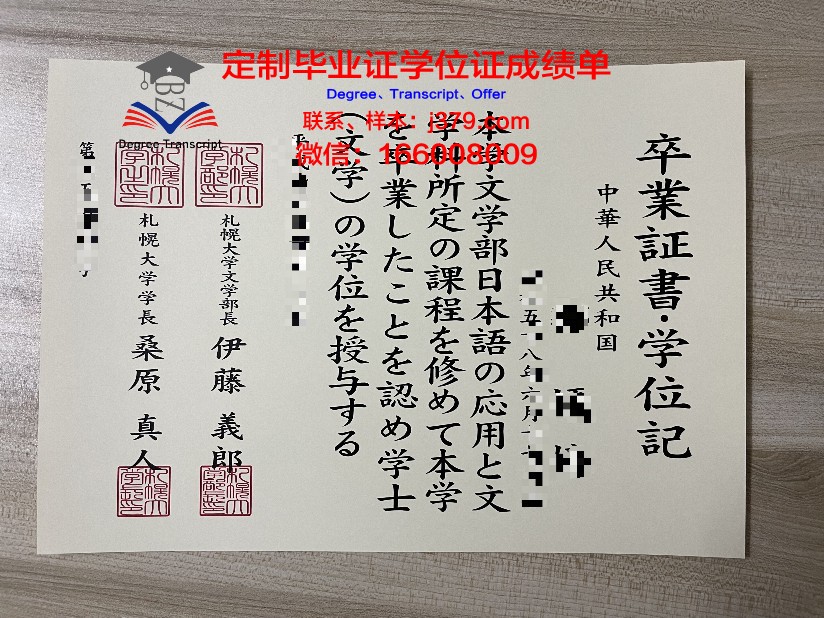 定制毕业证学位证成绩单
Degree、Transcript、Offer
联系、样本：j379.com
微信：166008009
BZ
Degree Transcript
卒業証書・学位記
中華人民共和国
本学文学部日本語の応用と文
学科所定の課程を修めて本学
を卒業したことを認め学士
（文学）の学位を授与する
札幌大学文学部長 伊藤 義郎
札幌大学学長 桑原 真人